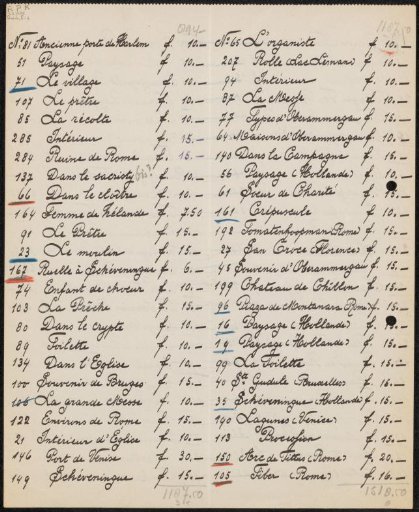 R.P.K.
1107.50
No. 81 Ancienne porte de Harlem f. 10.—
51 Paysage f. 10.—
71 Le village f. 10.—
107 Le prêtre f. 10.—
85 La récolte f. 10.—
285 Intérieur f. 15.—
284 Ruine de Rome f. 15.—
137 Dans le sacristy f. 10.—
66 Dans le cloître f. 10.—
164 Femme de hélande f. 7.50
91 Le Prêtre f. 15.—
23 Le moulin f. 15.—
167 Ruelle à Schéveningue f. 6.—
74 Enfant de choeur f. 10.—
103 La Prêche f. 15.—
80 Dans le crypte f. 10.—
89 Toilette f. 10.—
134 Dans l'Eglise f. 10.—
100 Souvenir de Bruges f. 15.—
La grande Messe f. 10.—
122 Environs de Rome f. 15.—
21 Intérieur d'Eglise f. 10.—
146 Port de Venise f. 30.—
149 Schéveningue f. 15.—
1107.50
No. 65 L'organiste f. 10.—
207 Rolle (Lac Leman) f. 10.—
94 Intérieur f. 10.—
87 La Messe f. 10.—
77 Types d'Oberammergau f. 15.—
64 Maisons d'Oberammergau f. 10.—
140 Dans la Campagne f. 15.—
56 Paysage (Hollande) f. 10.—
61 Soeur de Charité f. 15.—
161 Crépuscule f. 10.—
192 Tomatenkoopman (Rome) f. 15.—
27 San Croce (Florence) f. 15.—
45 Souvenir d'Oberammergau f. 15.—
199 Chateau de Chillon f. 15.—
96 Piazza de Montanara (Rome) f. 15.—
16 Paysage (Hollande) f. 15.—
19 Paysage (Hollande) f. 15.—
99 La Toilette f. 15.—
40 Ste Gudule Bruxelles f. 15.—
35 Schéveningue (Hollande) f. 15.—
190 Lagunes (Venise) f. 15.—
113 Procession f. 15.—
150 Arc de Tittus (Rome) f. 20.—
105 Tiber (Rome) f. 16.—
1518.50